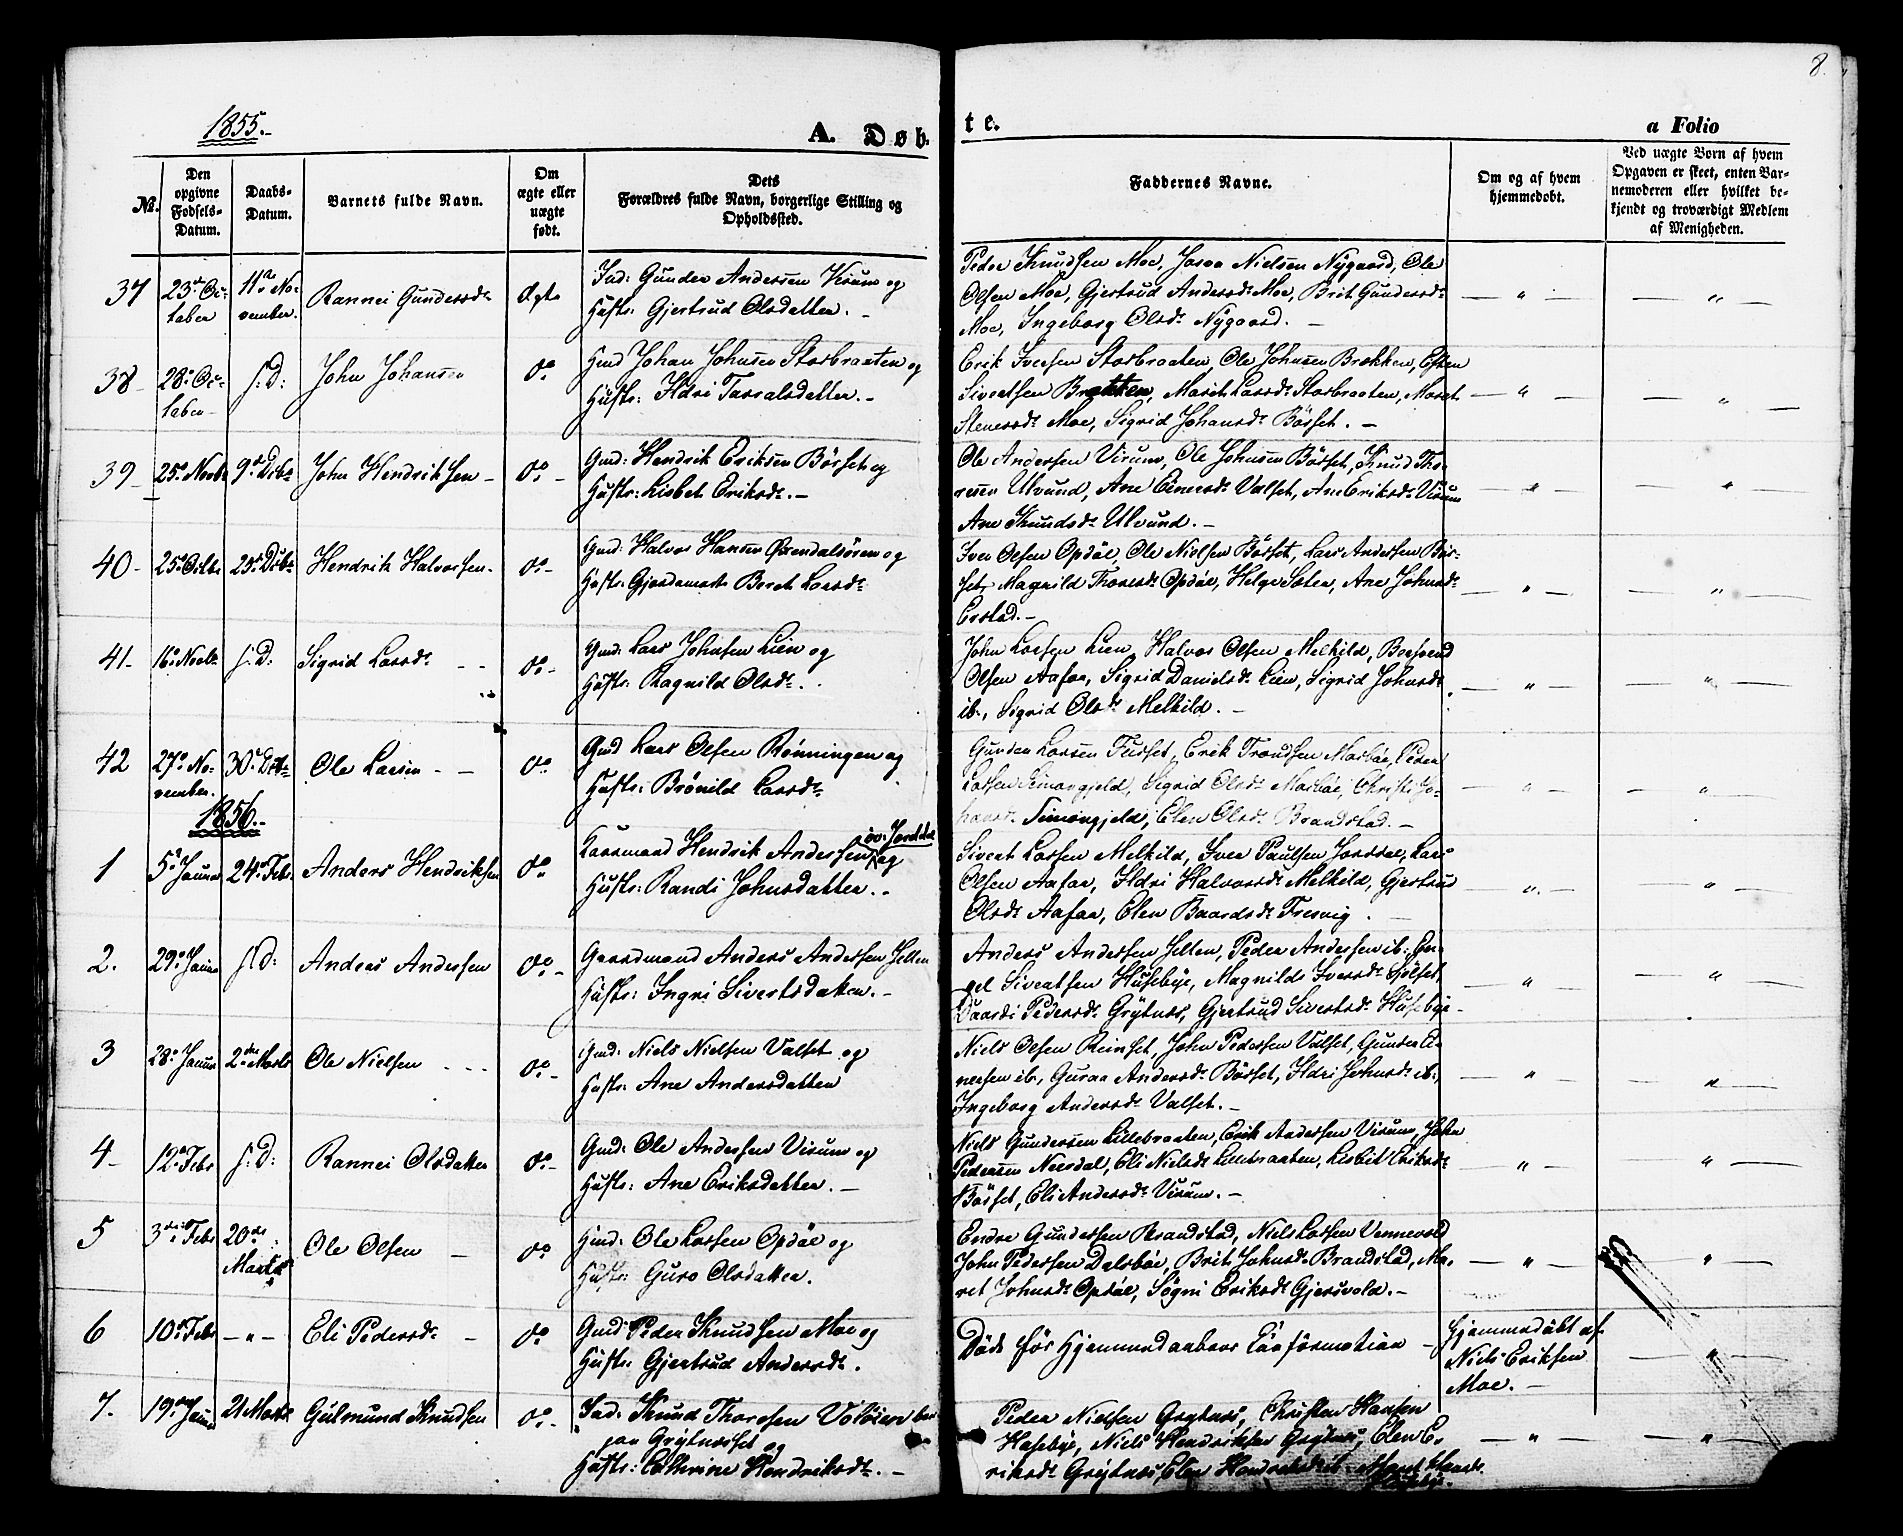 8.
1855.
A. Døb-
te.
a Folio
No.
Den opgivne Fødsels-Datum.
Daabs-Datum.
Barnets fulde Navn.
Om ægte eller uægte født.
Dets Forældres fulde Navn, borgerlige Stilling og Opholdssted.
Faddernes Navne.
Om og af hvem hjemmedøbt.
Ved uægte Børn af hvem Opgaven er skeet, enten Barnemoderen eller hvilket bekjendt og troværdigt Medlem af Menigheden.
37
23de Oc-
tober
11te No-
vember.
Rannei Gundersdr
Ægte
Ind: Gunder Andersen Virum og
Hustr: Gjertrud Olsdatter. –
Peder Knudsen Moe, Nielsen Nygaard, Ole
Olsen Moe, Gjertrud Andersdr Moe, Brit Gundersdr
Moe, Ingeborg Olsdr Nygaard. –
38
28de Oc-
tober
s: D:
John Johansen
do
Gmd Johan Johnsen Storbraaten og
Hustr: Ildri Tarralsdatter. –
Erik Iversen Storbraaten, Ole Johnsen Brekken,
Sivertsen Brekken, Marit Larsdr Storbraaten, Marit
Stenersdr Moe, Sigrid Johansdr Börset. –
39
25de Novbr
9de Decbr
John Hendriksen
do
Gmd: Hendrik Eriksen Börset og
Hustr: Lisbet Eriksdr. –
Ole Andersen Virum, Ole Johnsen Börset, Knud Tho-
resen Ulvund, Ane Einersdr Valset, Ane Eriksdr Virum
Ane Knudsdr Ulvund. –
40
25de Octbr
25de Decbr
Hendrik Halvorsen
do
Gmd: Halvor Hansen Øxendalsören og
Hustr: Beret Larsdr
Iver Olsen Opdöl, Ole Nielsen Börset, Lars Andersen Bör-
set, Magnild Thoresdr Opdöl, Helge Sæter, Ane Johnsdr
Erstad. –
41
16de Novbr
s: D:
Sigrid Larsdr
do
Gmd: Lars Johnsen Lien og
Hustr: Ragnild Olsdr.
John Larsen Lien, Halvor Olsen Melkild, Botsvend
Olsen Aafar, Sigrid Danielsdr Lien, Sigrid Johnsdr
ib., Sigrid Olsdr Melkild. –
42
27de No-
vember.
30de Decbr
Ole Larsen
do
Gmd Lars Olsen Rönningen og
Hustr: Brönild Larsdr
Gunder Larsen Furset, Erik Trondsen Marböe, Peder
Larsen Simongjeld, Sigrid Olsdr Marböe, Christi Jo-
hansdr Simongjeld, Elen Olsdr Brandstad. –
1856.
1
5te Januar
24de Febr
Anders Hendriksen
do
Kaarmand Hendrik Andersen öv: Jordal og
Hustr: Randi Johnsdatter. –
Sivert Larsen Melkild, Iver Paulsen Jordal, Lars
Olsen Aafar, Ildri Halvorsdr Melkild, Gjertrud
Olsdr Aafar, Elen Baardsdr Fresvig.
2.
29de Janr
s: D:
Anders Andersen
do
Gaardmand Anders Andersen Jelten
Hustr: Ingri Sivertsdatter. –
Anders Andersen Jelten, Peder Andersen ib.,
Sivertsen Husebye, Magnild Iversdr
Pedersdr Grytnæs, Gjertrud Sivertsdr Husebye –
3
28de Januar
2den Marts
Ole Nielsen
do
Gmd: Niels Nielsen Valset og
Hustr: Ane Andersdatter
Niels Olsen Reinset, John Pedersen Valset, Gunder Ei-
nersen ib., Guraa Andersdr Börset, Ildri Johnsdr ib.,
Ingeborg Andersdr Valset. –
4
12te Febr
s: D:
Rannei Olsdatter
do
Gmd: Ole Andersen Virum og
Hustr: Ane Eriksdatter. –
Niels Gundersen Lillebraaten, Erik Andersen Virum, John
Pedersen Neesdal, Eli Nielsdr Lillebraaten, Lisbet Eriksdr
Börset, Eli Andersdr Virum. –
5
3die Febr
20de
Marts
Ole Olsen
do
Hmd: Ole Larsen Opdöl og
Hustr: Guro Olsdatter.
Endre Gundersen Brandstad, Niels Larsen Vennevold
John Pedersen Dalsböe, Brit Johnsdr Brandstad, Ma-
rit Johnsdr Opdöl, Sögni Eriksdr Gjersvold. –
6
10de Febr
– " –
Eli Pedersdr
do
Gmd: Peder Knudsen Moe og
Hustr: Gjertrud Andersdr.
Död før Hjemmedaabens Confirmation
Hjemmedöbt af
Niels Eriksen
Moe. –
7.
19de Janr
21 Marts
Gulmund Knudsen
do
Ind: Knud Thoresen
paa Grytnæset og
Hustr: Cathrine Hendriksdr. –
Peder Nielsen Grytnæs, Christen Hansen
Husebye, Niels Hendriksen Grytnæs, Elen E-
riksdr Grytnæs, Elen Hendriksdr ib., Marit Hansdr
Husebye.